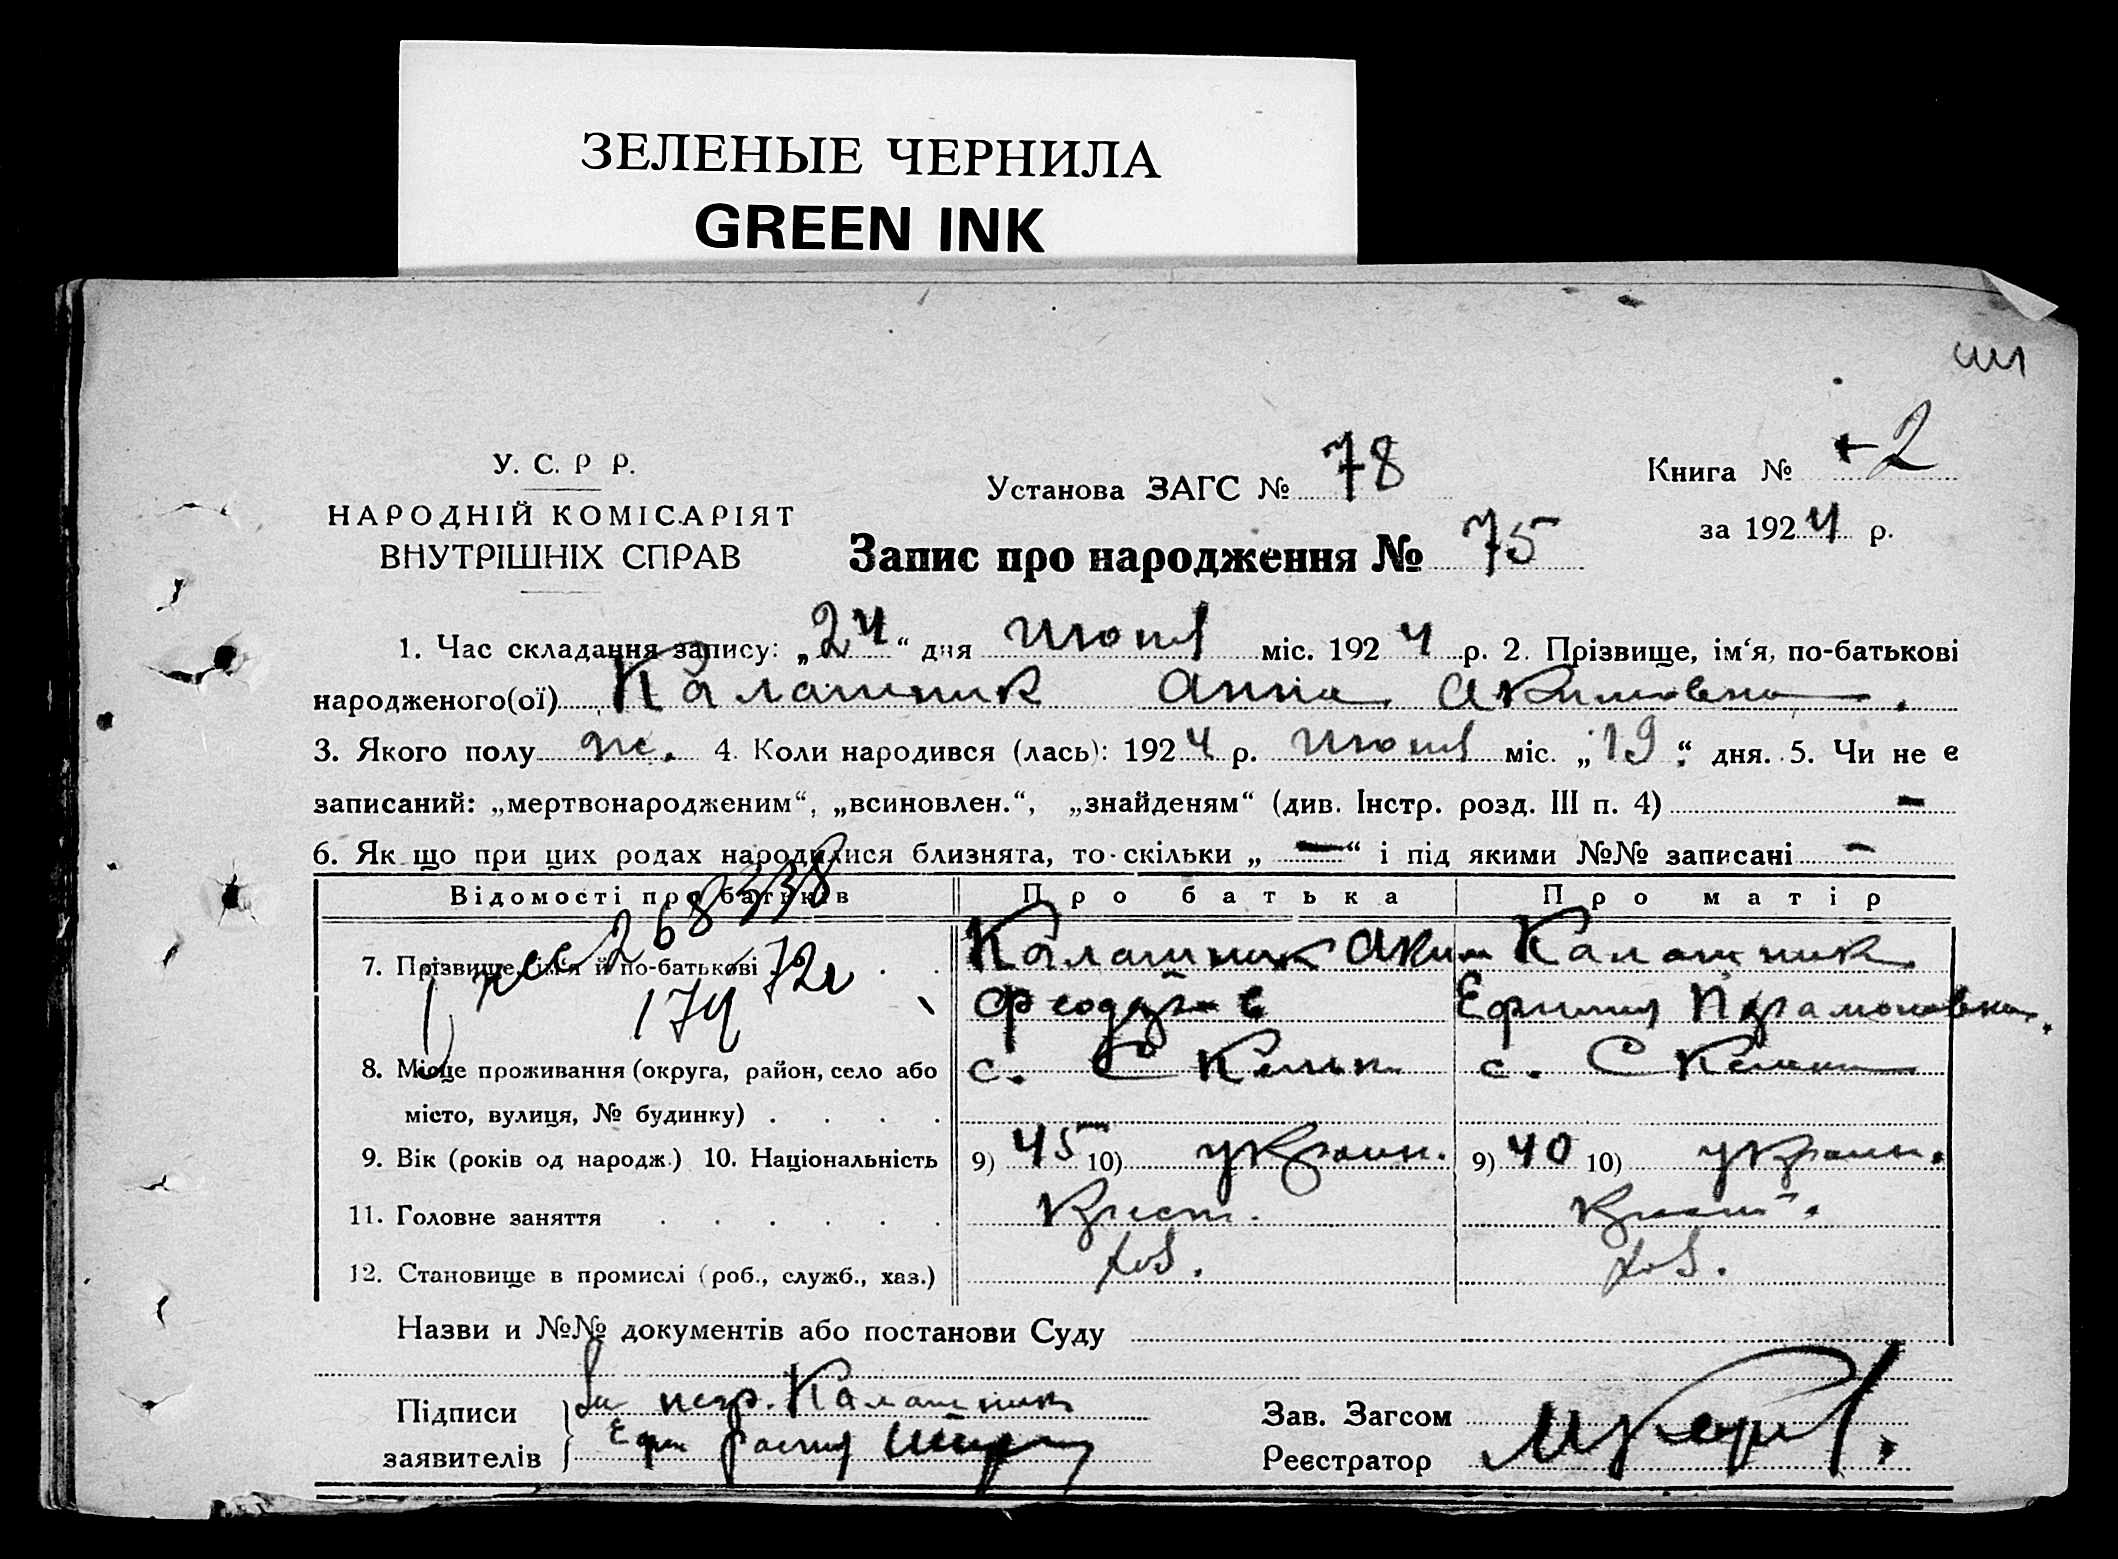 ЗЕЛЕНЫЕ ЧЕРНИЛА
GREEN INK
У. С. Р Р.
НАРОДНІЙ КОМІСАРІЯТ
ВНУТРІШНІХ СПРАВ
Установа ЗАГС № 78
Книга № 2
за 1924 р.
Запис про народження № 75
1. Час складання запису: „24“ дня июня міс. 1924 р. 2. Прізвище, ім‘я, по-батькові
народженого(ої) Калашник Анна Акимовна.
3. Якого полу ж. 4. Коли народився (лась): 1924 р. июня міс. „19“ дня. 5. Чи не є
записаний: „мертвонародженим“, „всиновлен.“, „знайденям“ (див. Інстр. розд. III п. 4) —
6. Як що при цих родах народилися близнята, то скільки „—“ і під якими №№ записані —
Відомості про батьків Про батька Про матір
7. Прізвище, ім‘я й по-батькові Калашник Аким Калашник
268338
72
174
Ефимия Парамоновна.
8. Місце проживання (округа, район, село або с. Скельки с. Скельки
місто, вулиця, № будинку)
9. Вік (років од народж.) 10. Національність 9) 45 10) украин. 9) 40 10) украин.
11. Головне заняття Крест. Крест.
12. Становище в промислі (роб., служб., хаз.) хоз. хоз.
Назви и №№ документів або постанови Суду
Підписи За негр. Калашник
заявителів
Зав. Загсом
Реєстратор